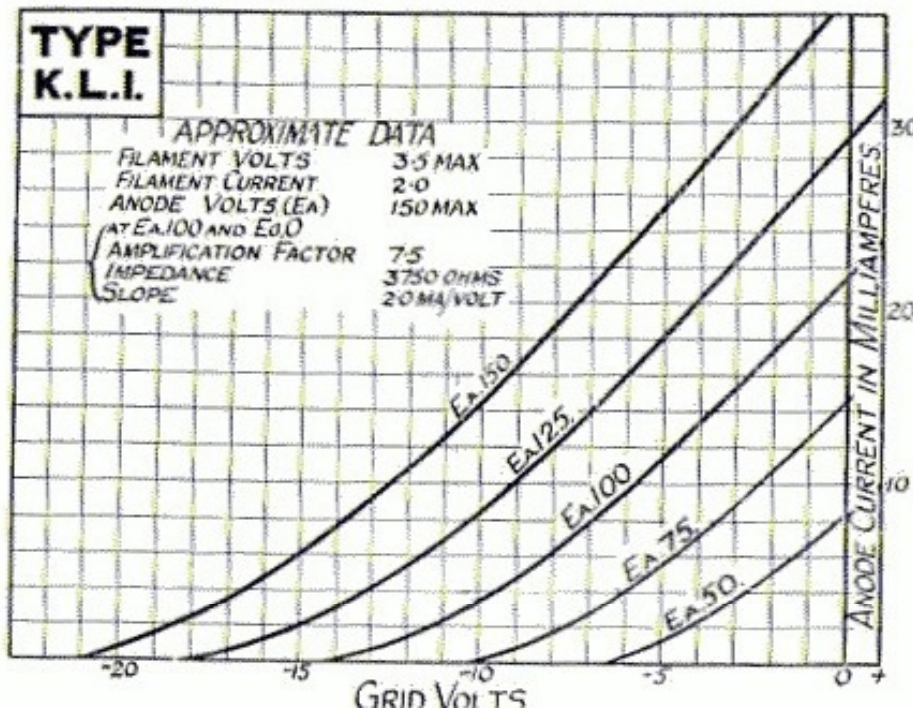 TYPE
K.L.I.
APPROXIMATE DATA
FILAMENT VOLTS 3·5 MAX
FILAMENT CURRENT 2·0
ANODE VOLTS (EA) 150 MAX
AT EA.100 AND EG.0
AMPLIFICATION FACTOR 7·5
IMPEDANCE 3750 OHMS
SLOPE 2·0 MA/VOLT
EA.150.
EA.125.
EA.100
EA.75.
EA.50.
30
20
10
ANODE CURRENT IN MILLIAMPERES.
-20 -15 -10 -5 0 +
GRID VOLTS